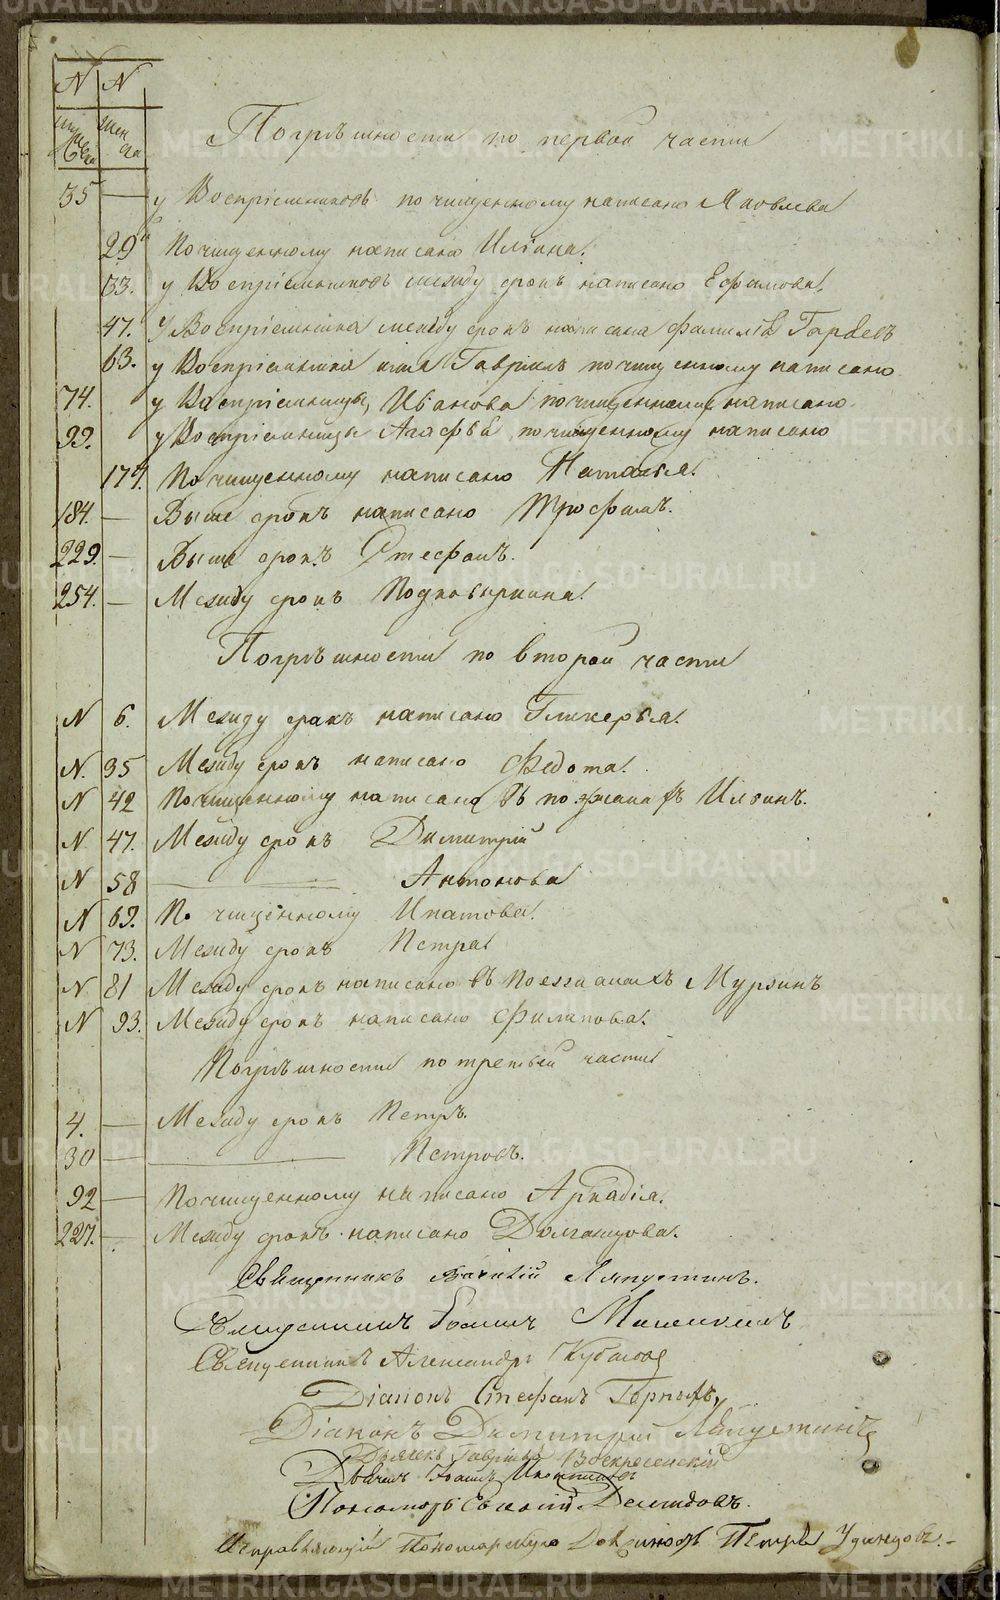 N N
мужеска женска
Погрѣшности по первой части
35 — у Воспріемниковъ по чищенному написано Яковлева
29 По чищенному написано Илiина.
33. у Воспріемниковъ между срокъ написано Ефимова.
47. У Воспріемника между срокъ написана фамилiя
63. у Воспріемника имя Гавриилъ по чищенному написано
74. у Воспріемницы, Иванова по чищенному написано.
99. у Воспріемницы Агафья по чищенному написано
174. По чищенному написано Наталья.
184. — Выше срокъ написано Трофимъ.
229. — Выше срокъ Стефанъ.
254. — Между срокъ
Погрѣшности по второй части
N 6. Между срокъ написано Гликерья.
N. 35 Между срокъ написано Федота.
N 42 По чищенному написано въ Илвинъ.
N 47. Между срокъ Димитрій
N 58 Антонова
N 69. По чищенному Ипатова.
N 73. Между срокъ Петра
N 81 Между срокъ написано въ Мурзинъ
N 93. Между срокъ написано Филипова.
Погрѣшности по третьей части
4. — Между срокъ Петръ.
30 — Петровъ.
92 — По чищенному написано Аркадія.
227. — Между срокъ написано Долганцова.
Священникъ Ляпустинъ.
Священникъ Іоаннъ
Священникъ Александръ
Діаконъ Стефанъ Горныхъ,
Діаконъ Димитрій Ляпустинъ
Дьячекъ Гавріилъ Воскресенскій
Дьячекъ Іоаннъ
Пономарь Евгеній Демидовъ.
Исправляющій Пономарскую Должность Петръ Удинцовъ.
METRIKI.GASO-URAL.RU